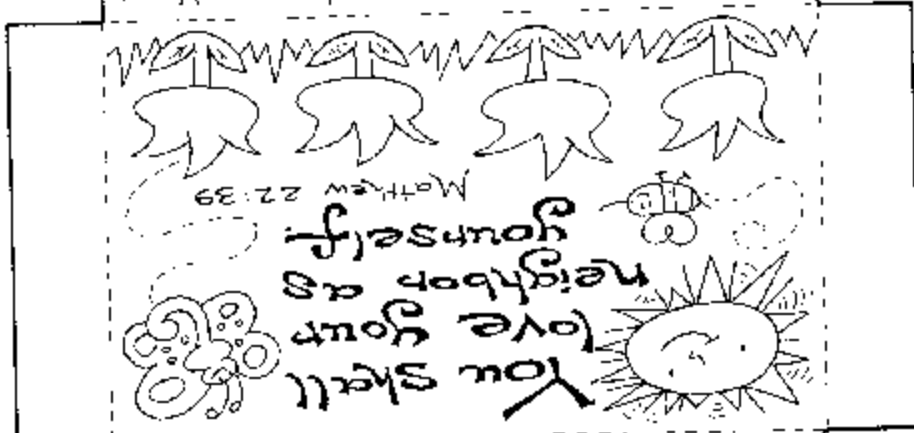 You shall
love your
neighbor as
yourself.
Matthew 22:39